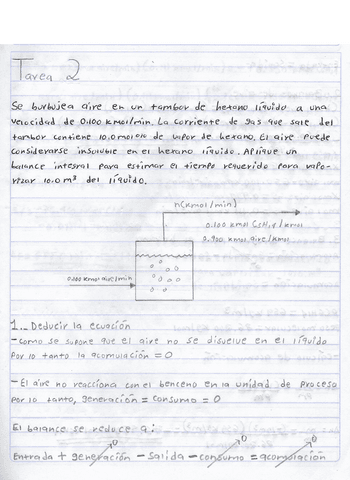 Tarea 2
Se burbujea aire en un tambor de hexano líquido a una
velocidad de 0.100 kmol/min. La corriente de gas que sale del
tambor contiene 10.0 mol% de vapor de hexano. El aire puede
considerarse insoluble en el hexano líquido. Aplique un
balance integral para estimar el tiempo requerido para vapo-
rizar 10.0 m³ del líquido.
n(kmol/min)
0.100 kmol C6H14/kmol
0.900 kmol aire/kmol
0.100 kmol aire/min
1.- Deducir la ecuación
-Como se supone que el aire no se disuelve en el líquido
por lo tanto la acomulación = 0
-El aire no reacciona con el benceno en la unidad de proceso
Por lo tanto, generación = consumo = 0
El balance se reduce a:
0 0 0
Entrada + generación - salida - consumo = acomulación